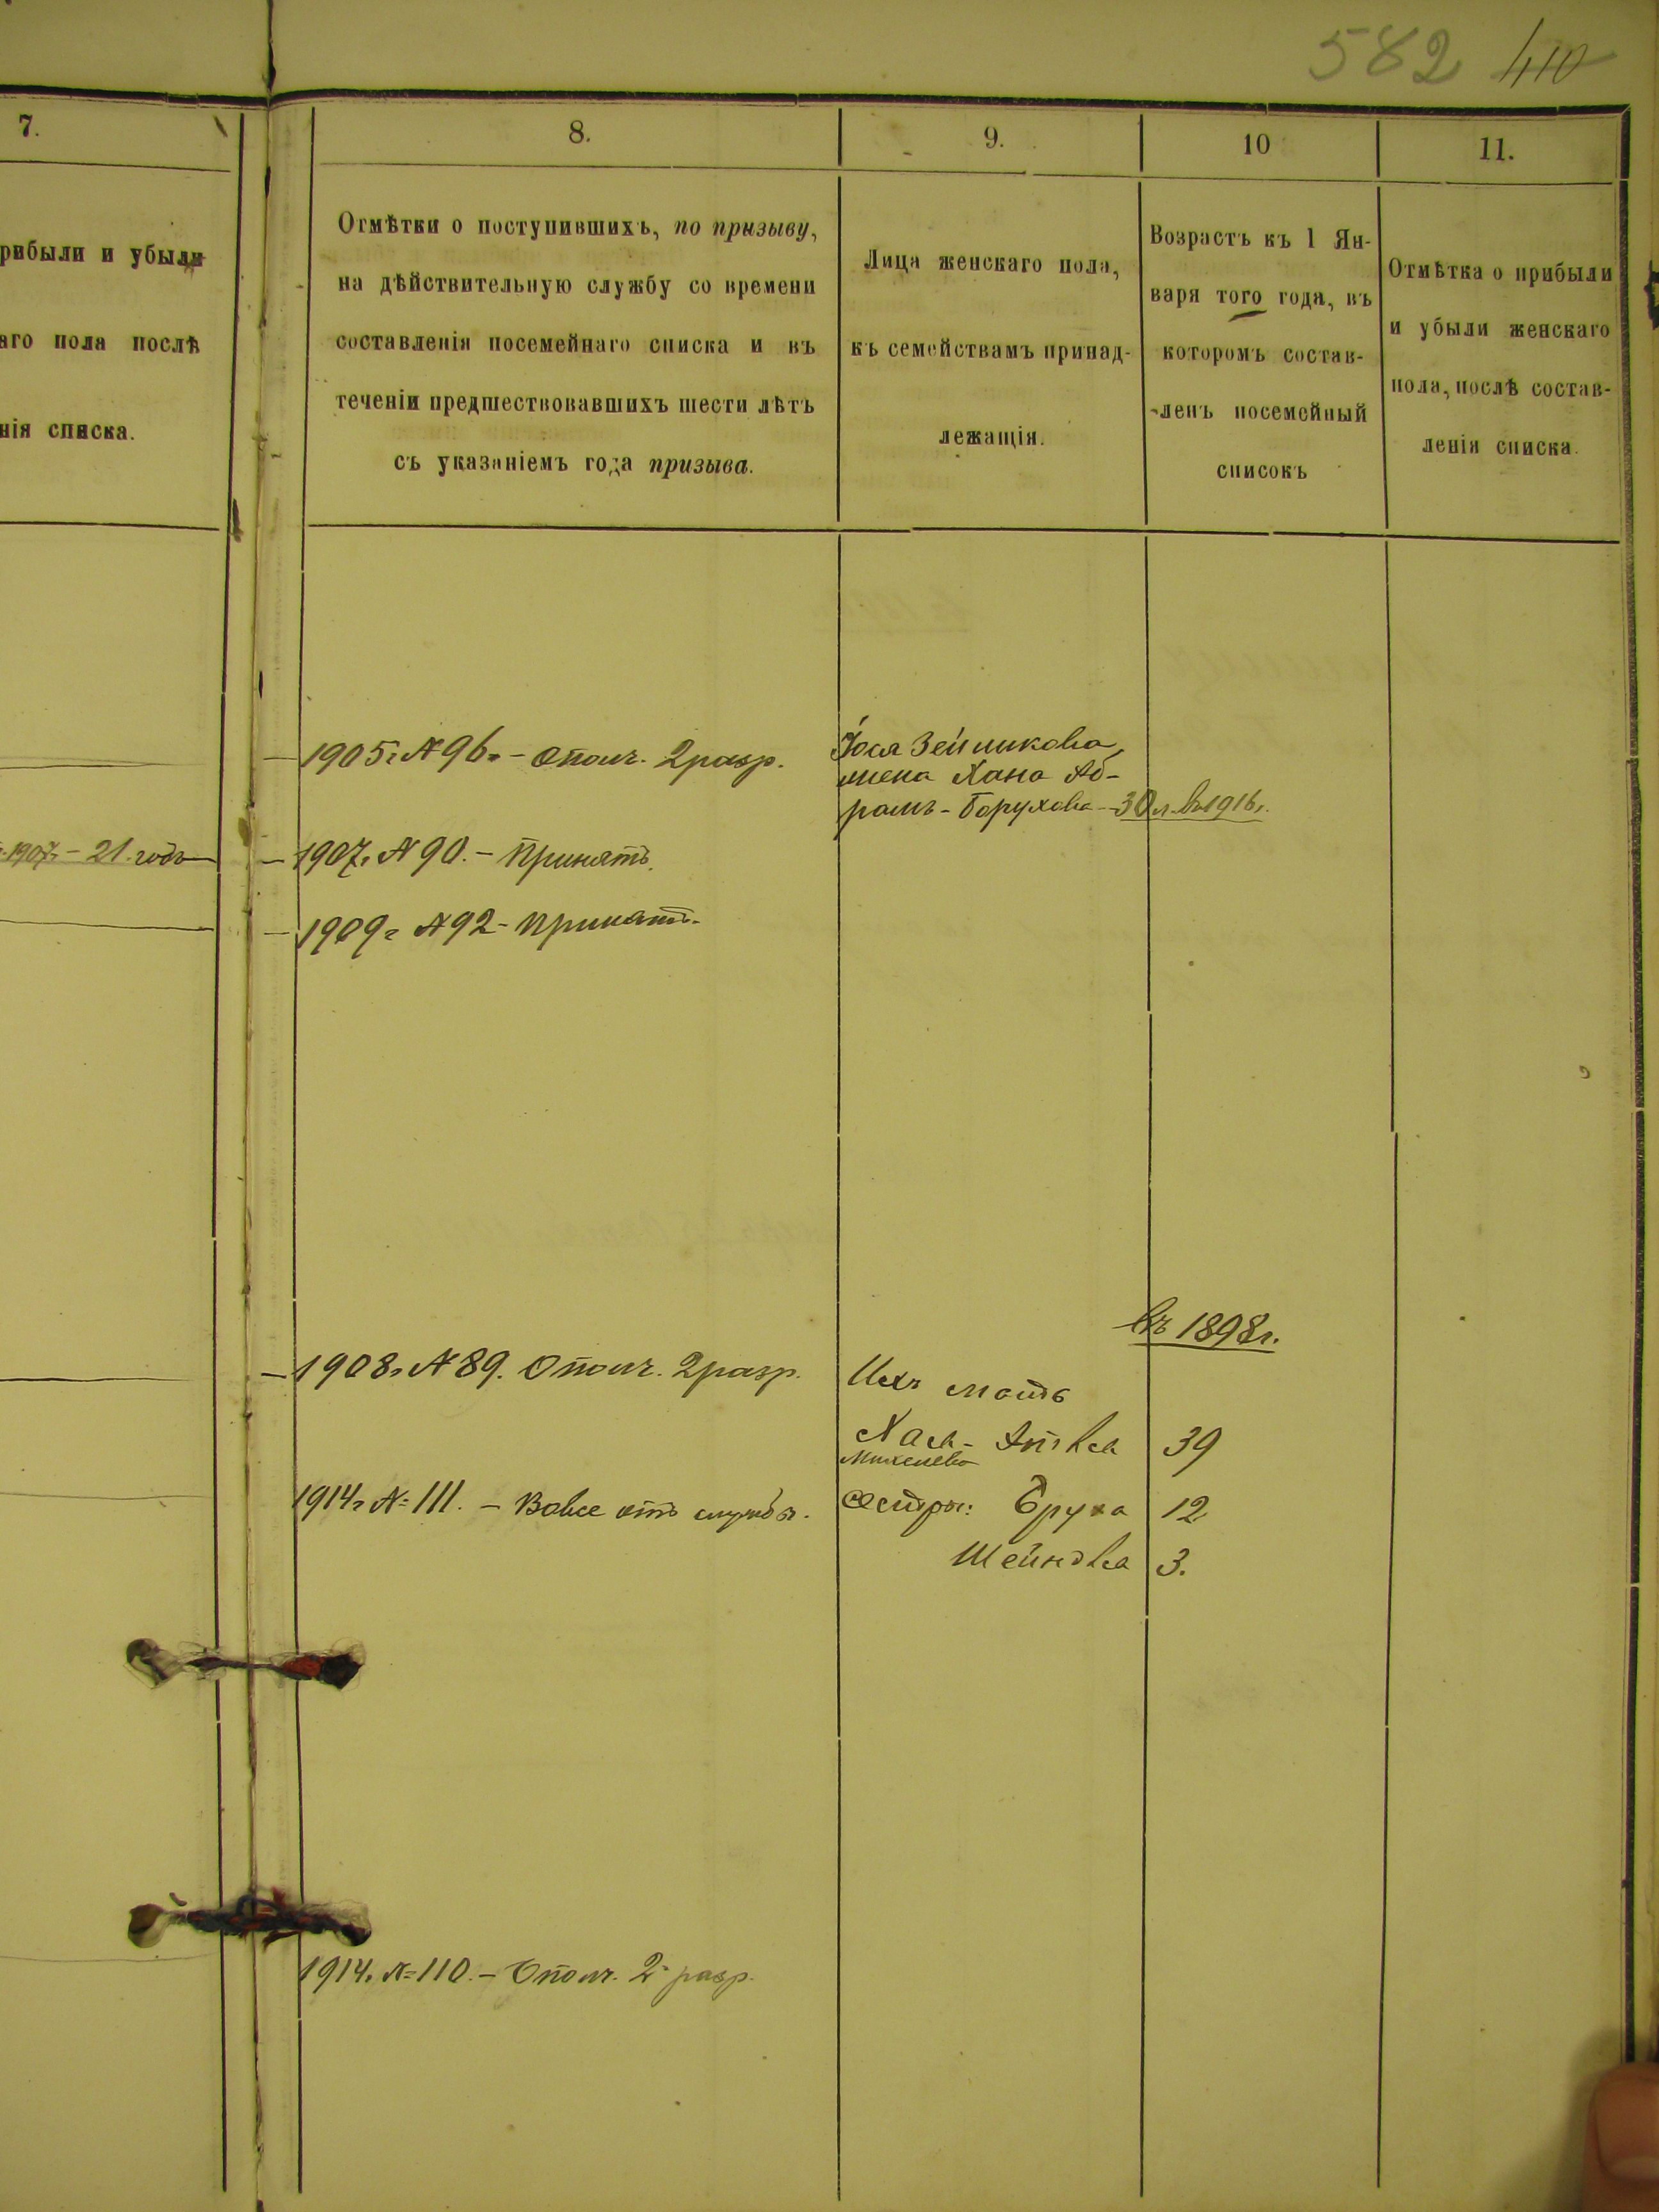 582 410
7.
8.
9.
10
11.
рибыли и убыли
аго пола послѣ
нія списка.
Отмѣтки о поступившихъ, по призыву,
на дѣйствительную службу со времени
составленія посемейнаго списка и въ
теченіи предшествовавшихъ шести лѣтъ
съ указаніемъ года призыва.
Лица женскаго пола,
къ семействамъ принад-
лежащія.
Возрастъ къ 1 Ян-
варя того года, въ
которомъ состав-
ленъ посемейный
списокъ
Отмѣтка о прибыли
и убыли женскаго
пола, послѣ состав-
ленія списка.
1905г. № 96. - Ополч. 2 разр.
Зейликова,
жена Хана Аб-
рамъ-Борухова - 30 л. въ 1916г.
1907 - 21 годъ
1907г. № 90. - Принятъ.
1909г. № 92 - Принятъ.
въ 1898г.
1908г. № 89. Ополч. 2 разр.
Ихъ мать
Хая- 39
Михелева
1914г. № 111. - Вовсе отъ службы.
сестры: Бруха 12
Шейндля 3.
1914г. № 110. - Ополч. 2 разр.